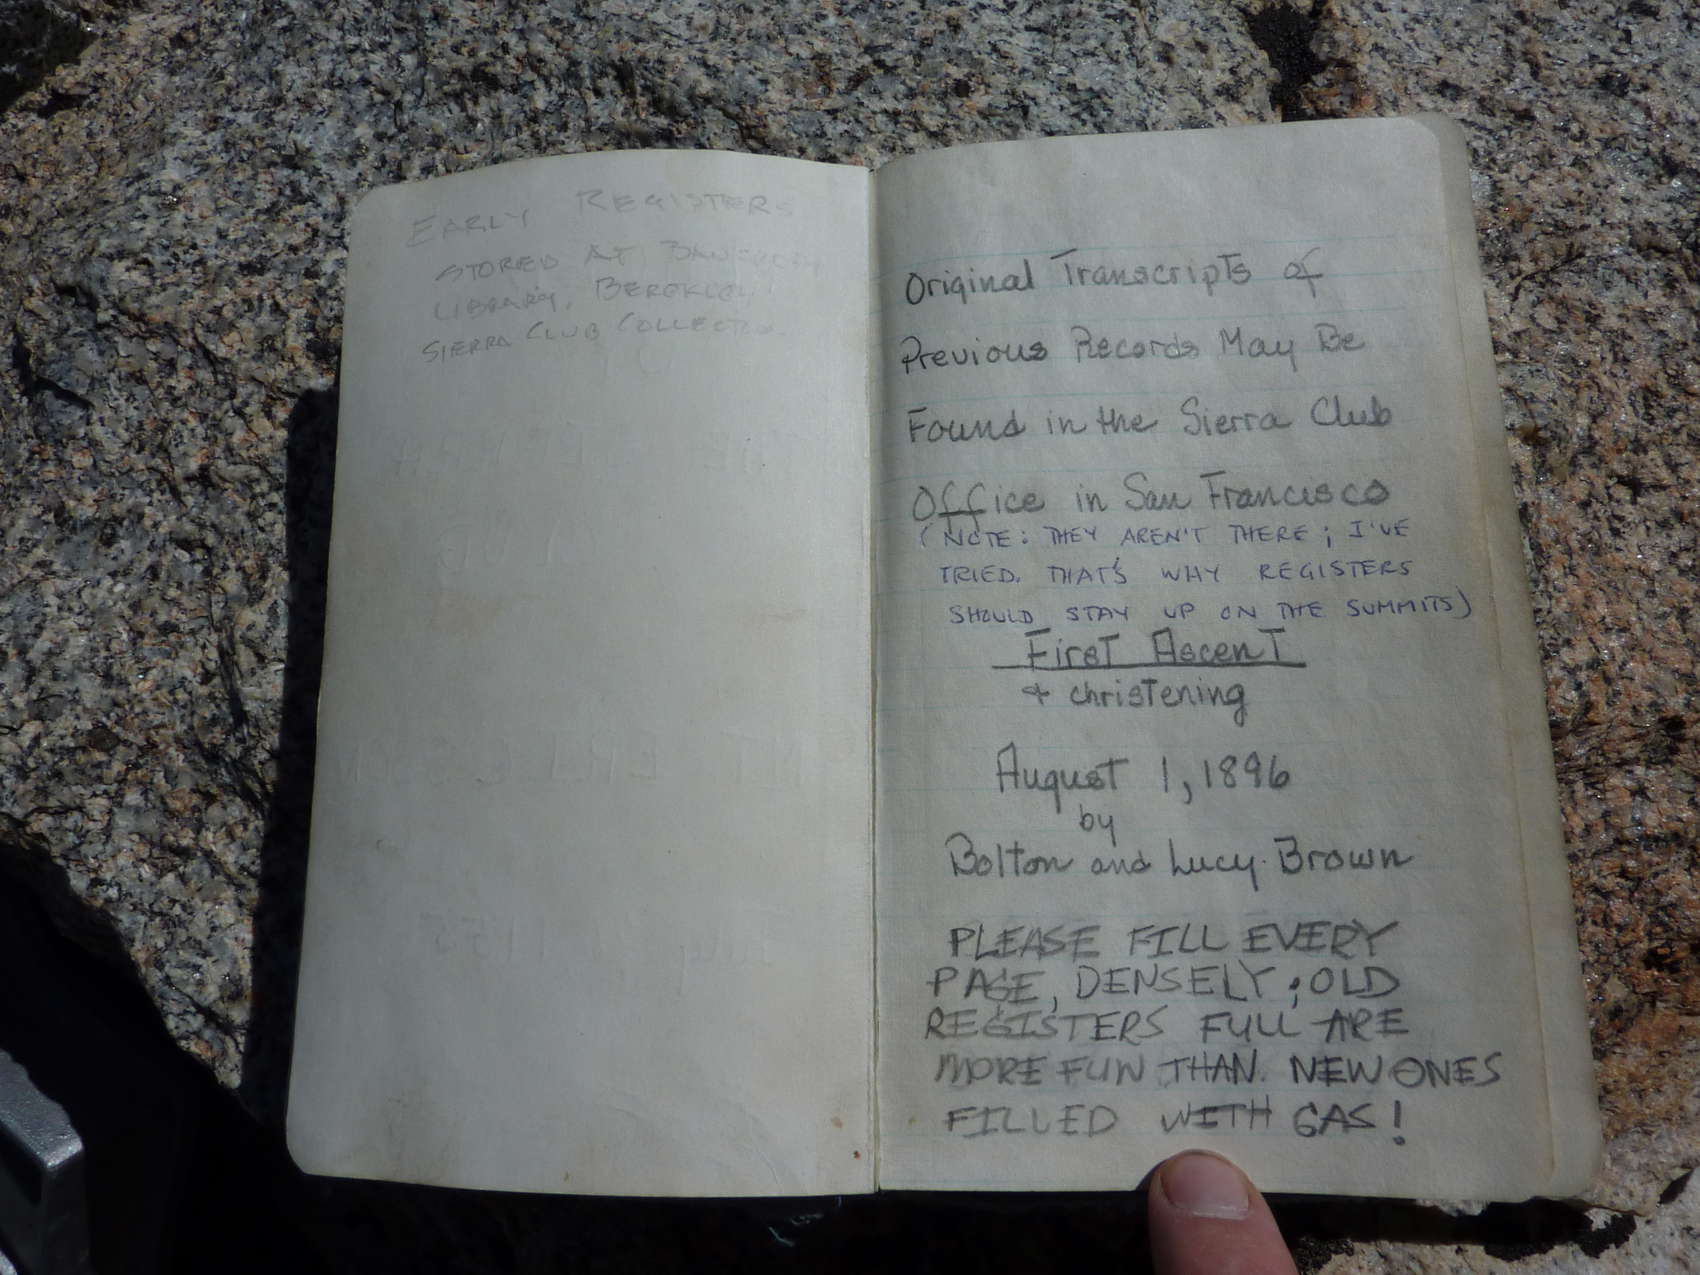 EARLY REGISTERS
STORED AT BANCROFT
LIBRARY, BERKELEY
SIERRA CLUB COLLECTION
Original Transcripts of
Previous Records May Be
Found in the Sierra Club
Office in San Francisco
(NOTE: THEY AREN'T THERE; I'VE
TRIED. THAT'S WHY REGISTERS
SHOULD STAY UP ON THE SUMMITS)
First Ascent
+ christening
August 1, 1896
by
Bolton and Lucy Brown
PLEASE FILL EVERY
PAGE, DENSELY; OLD
REGISTERS FULL ARE
MORE FUN THAN NEW ONES
FILLED WITH GAS!